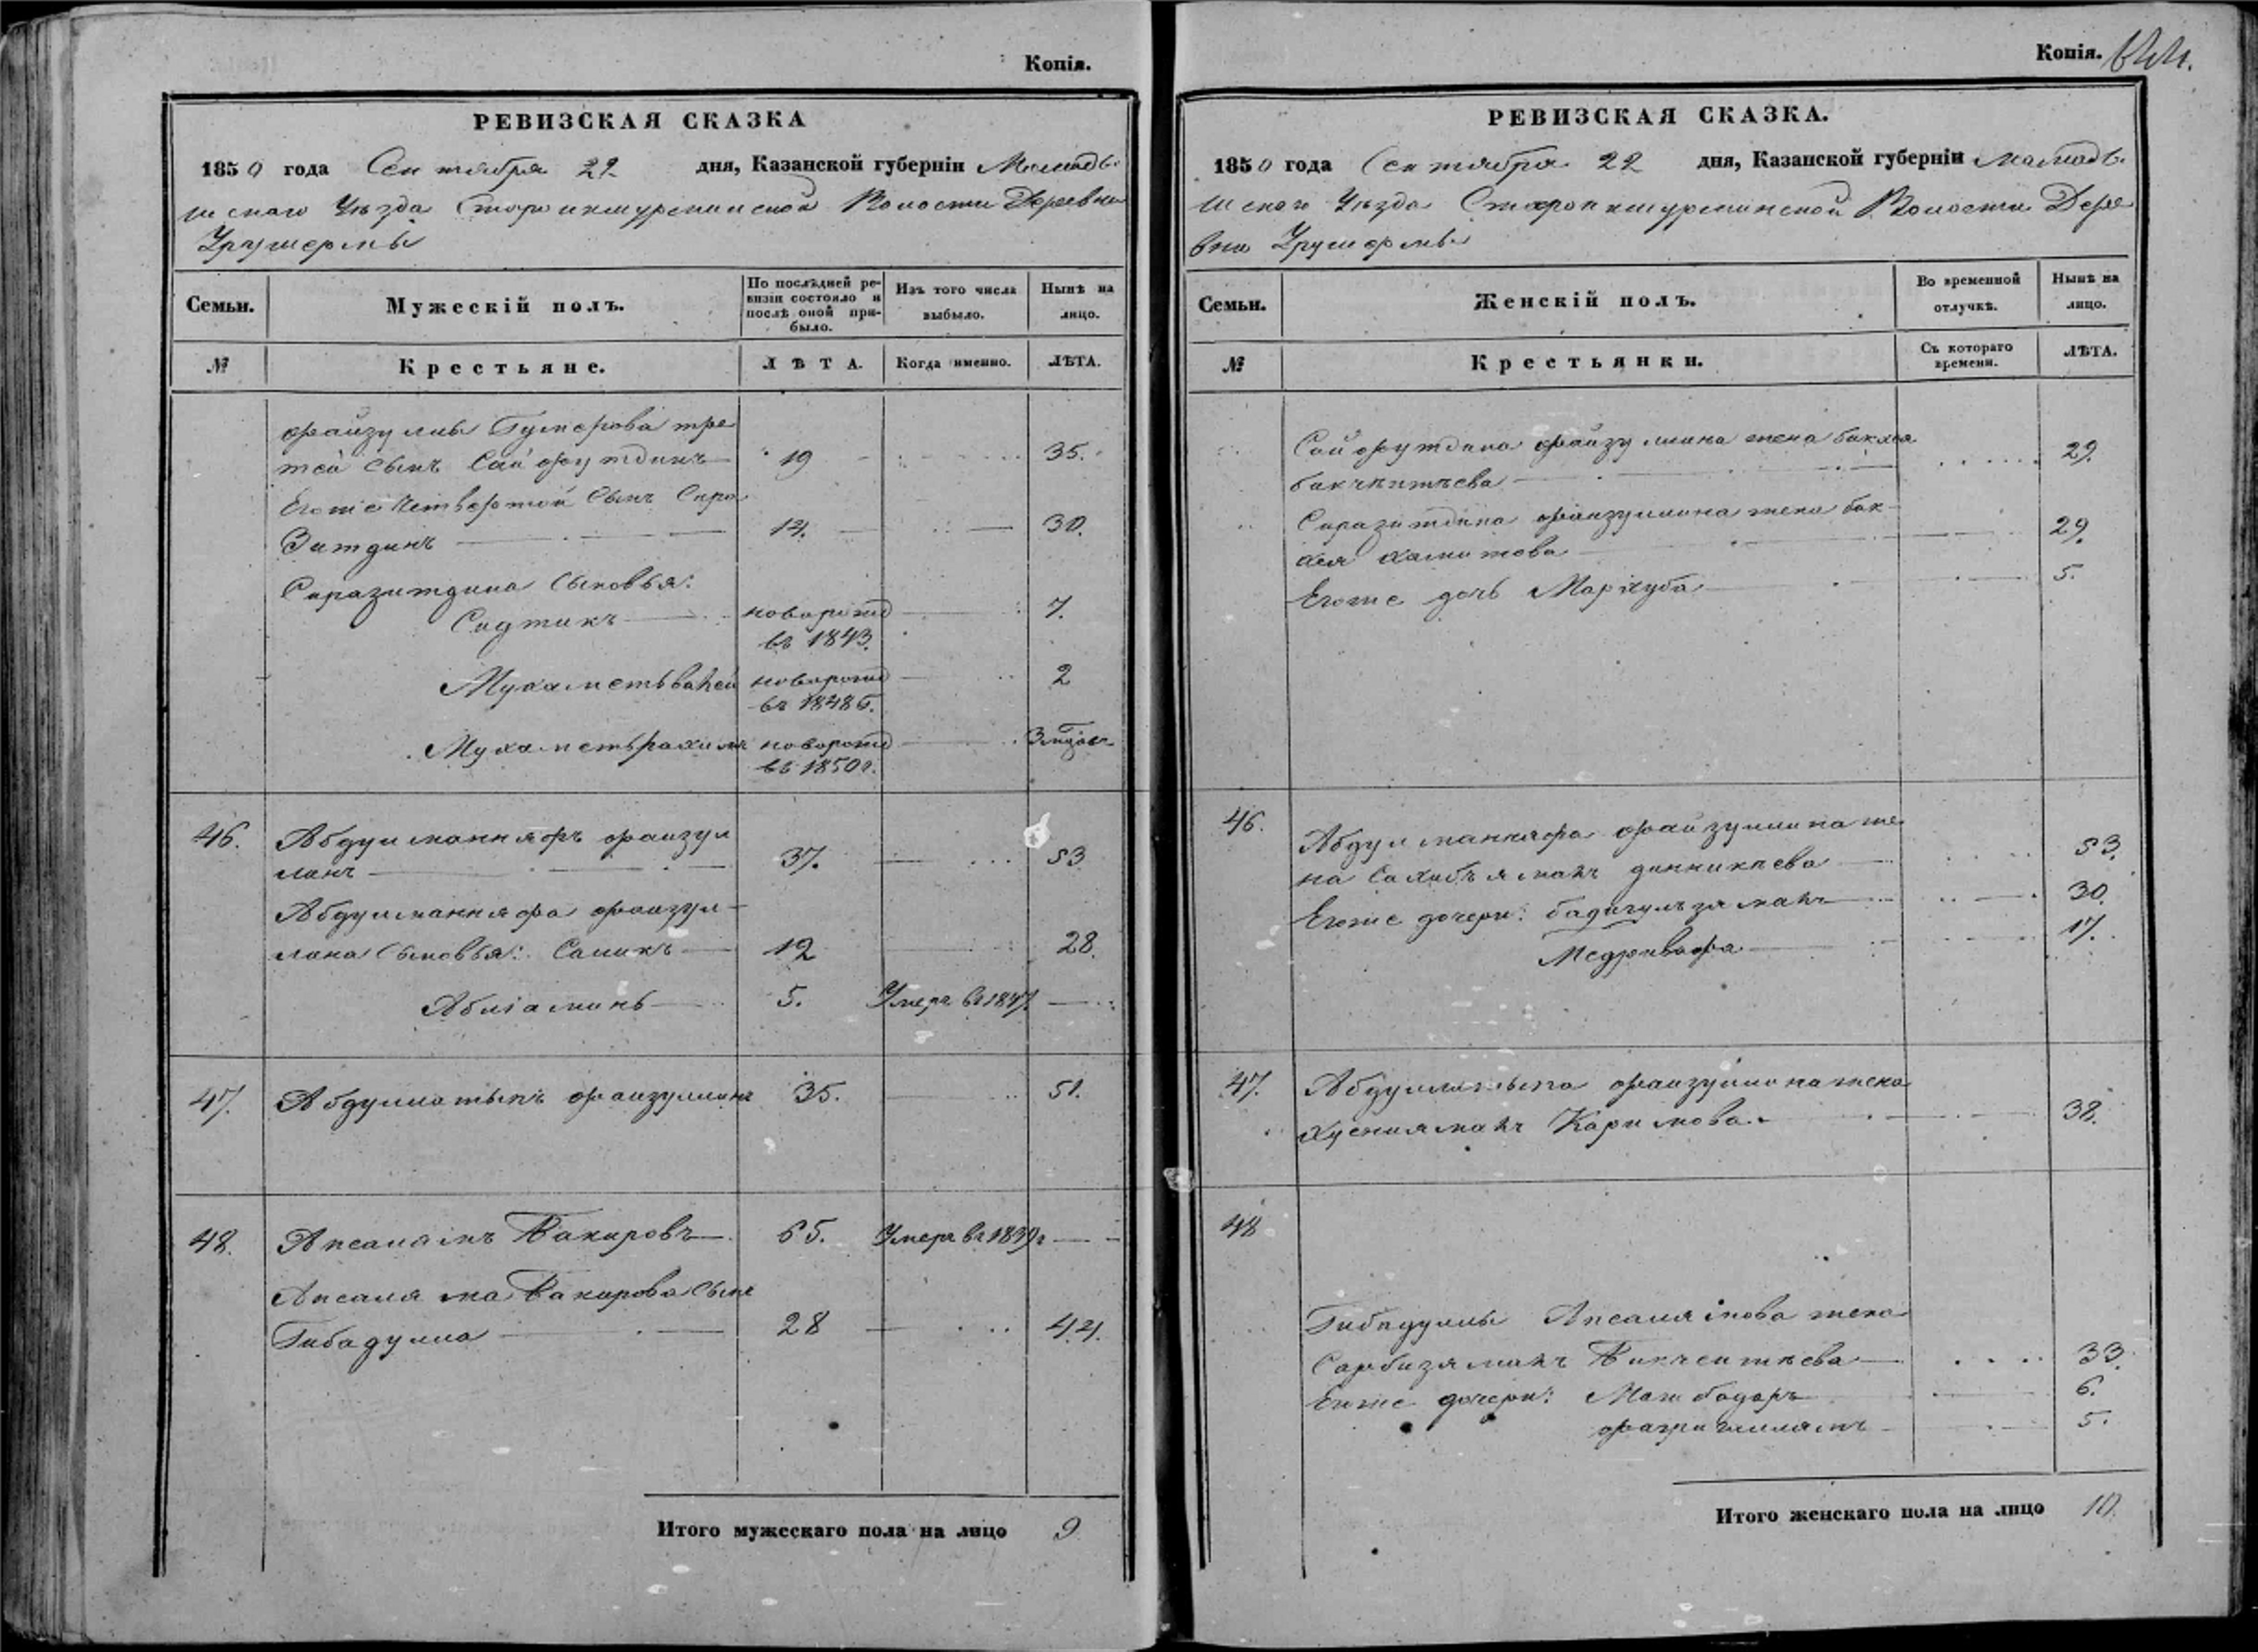 Копія.
РЕВИЗСКАЯ СКАЗКА
1850 года Сентября 22 дня, Казанской губерніи Мамады
шскаго Уѣзда Староикшурминской Волости Деревни
Урушермы
Семьи.
Мужескій полъ.
По послѣдней ре-
визіи состояло и
послѣ оной при-
было.
Изъ того числа
выбыло.
Нынѣ на
лицо.
№
Крестьяне.
ЛѢТА.
Когда именно.
ЛѢТА.
Файзуллы Гумерова тре
тей сынъ Сайфутдинъ 19 35.
Егоже четвертой сынъ Сира
зитдинъ 14. 30.
Сиразитдина сыновья:
Сидтикъ новорожд 7.
въ 1843.
Мухаметьвалей новорожд 2
въ 1848 г.
Мухаметьрахимъ новорожд 3 мѣсяц
въ 1850 г.
46. Абдулманняфъ файзул
линъ 37. 53
Абдулманняфа файзул-
лина сыновья: Саликъ 12 28.
Абліаминь 5. Умеръ въ 1847.
47. Абдуллатыпъ файзуллинъ 35. 51.
48. Апсалямъ Бакировъ 65. Умеръ въ 1839 г
Апсаляма Бакирова сынъ
Гибадулла 28 44.
Итого мужескаго пола на лицо 9
Копія.
РЕВИЗСКАЯ СКАЗКА.
1850 года Сентября 22 дня, Казанской губерніи Мамады
шскаго Уѣзда Староикшурминской Волости Дере
вни Урушермы
Семьи.
Женскій полъ.
Во временной
отлучкѣ.
Нынѣ на
лицо.
№
Крестьянки.
Съ котораго
времени.
ЛѢТА.
Сайфутдина файзуллина жена
29.
Сиразитдина файзуллина жена бик-
кея хамитова 29.
Егоже дочь Мархуба 5.
46. Абдулманняфа файзуллина же
на Сахибъямалъ 53.
Егоже дочери: бадигулъзямалъ 30.
17.
47. Абдуллатыпа файзуллина жена
Хуснилямалъ Каримова 38.
48
Гибадуллы Апсалямова жена
Сарбизямалъ 33.
Егоже дочери: 6.
5.
Итого женскаго пола на лицо 10.